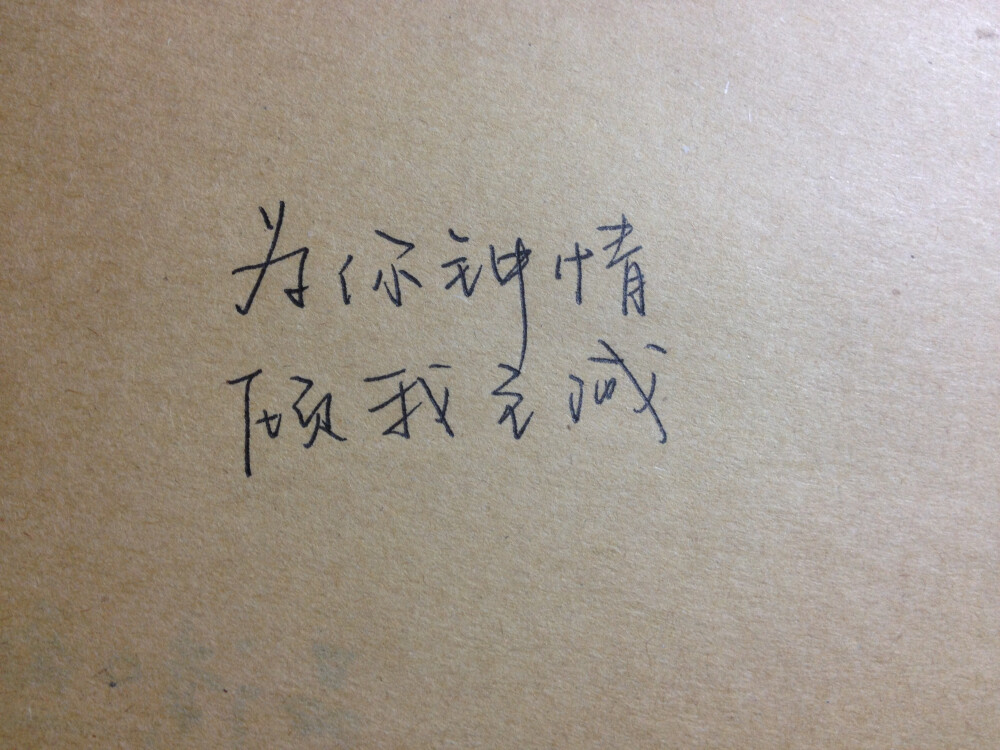 为你钟情
顾我至诚